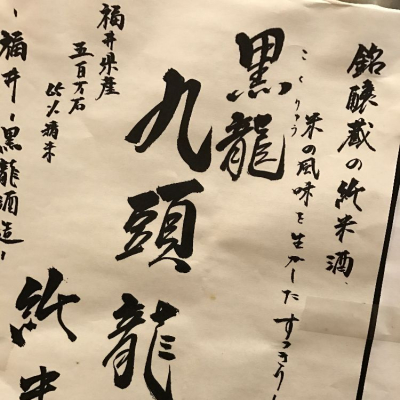 銘醸蔵の純米酒
米の風味を生かしたすっきり
こくりゅう
黒龍
九頭龍
純米
福井県産
五百万石
65%精米
－福井－黒龍酒造－